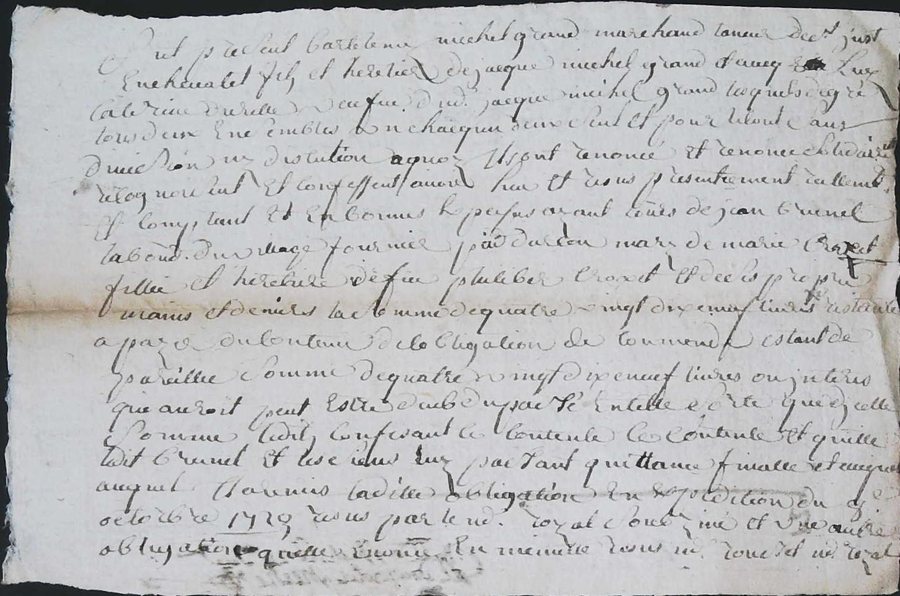 fut present bartelemi michel grand marchand taneur de st just
En chevalet fils et heretier de jacque michel grand et avec
Caterine veufve dud. jacque michel grand lesquels de gré
tous deux Ensembles & un chacqun deux seul et pour le tout sans
division ny discution a quoy ils ont renoncé et renonce solidaire
recognoissent Et confessent avoir heu et reçus presentement rallement
Et comptant Et En bonnes Especes ayant cours de jean brunel
labour. du village fournier mary de marie croset
fillie et heretiere de feu philiber croset Et de ses propre
mains et deniers la somme de quatre vingt dix neuf livres restante
a payer du contenu de lobligation de commende estant de
pareillie somme de quatre vingt dix neuf livres ou interes
que auroit peut Estre dub du passé En telle sorte que dicelle
somme lesdits confessant le contente le contente et quitte
ledit brunel et les siens par tant quittance finalle et
auquel Il a remis ladite obligation En expedition du 9e
octobre 1729 reçus par le nd. royal soubsigné et une autre
obligation quelle Enonce En minutte reçus md. not royal